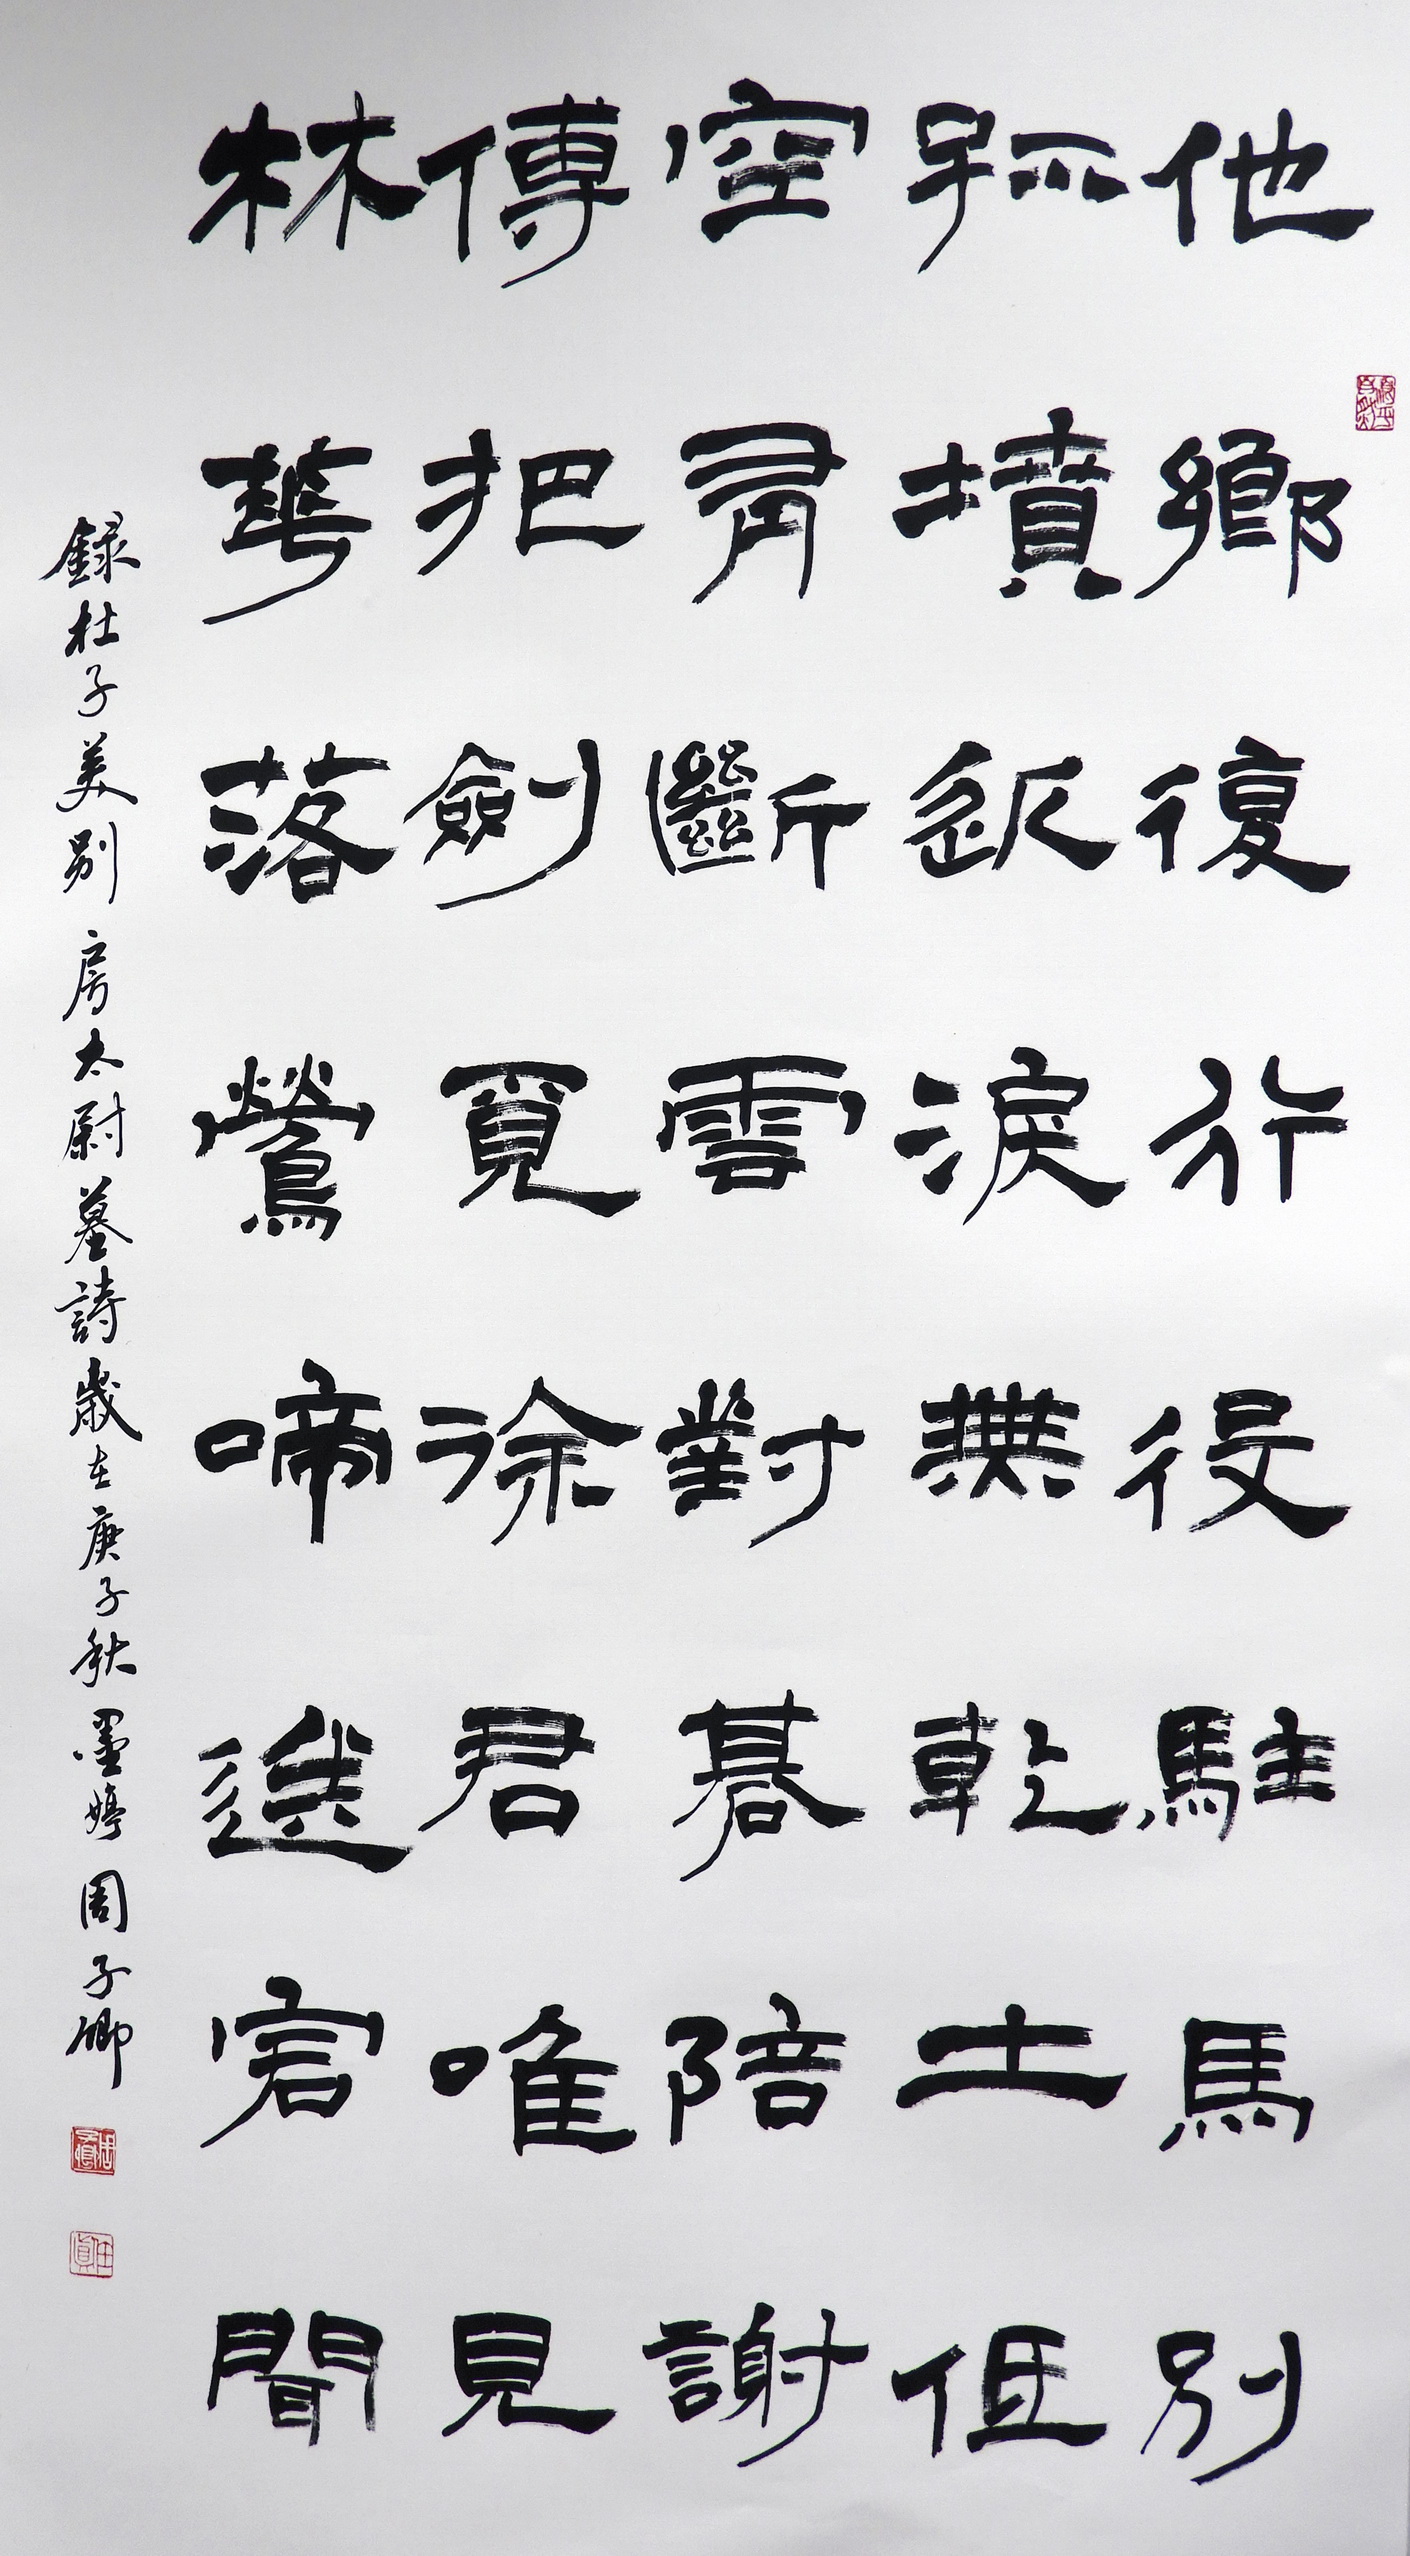 他鄉復行役駐馬別
孤墳近淚無乾土低
空有斷雲對碁陪謝
傅把劍覓徐君唯見
林華落鶯啼送客聞
録杜子美別房太尉墓詩歲在庚子秋墨婷周子卿